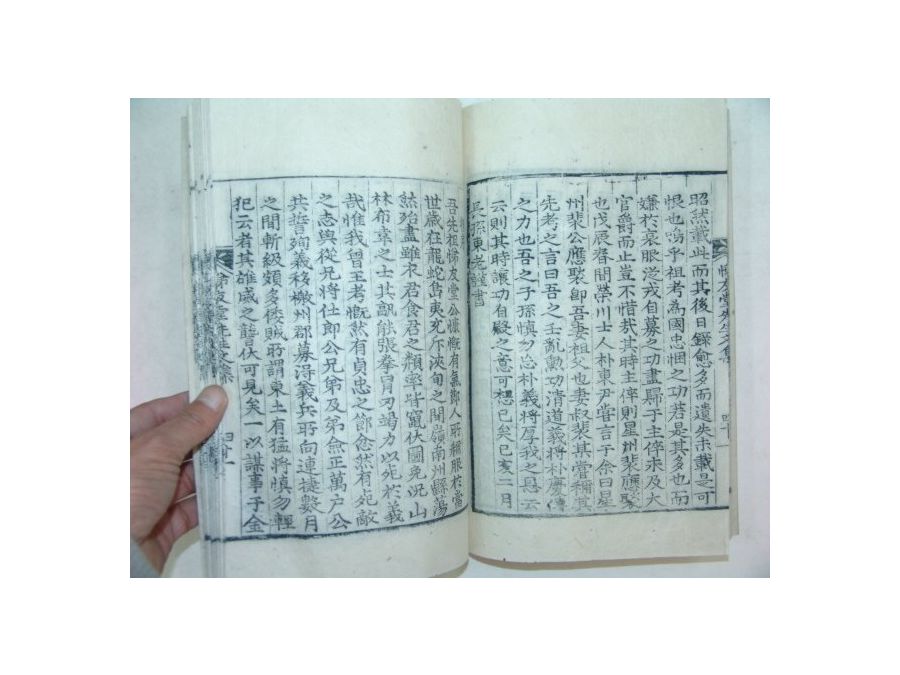 昭然載此而其後日錄愈多而遺失未載是可
恨也嗚乎祖考為國忠悃之功若是其多也而
嫌於衰服從戎自募之功盡歸于主倅永及大
官爵而止豈不惜哉其時主倅則星州裴應褧
也戊辰春間榮川士人朴東尹嘗言于余曰星
州裴公應褧卽吾妻祖父也妻叔裴其嘗稱其
先考之言曰吾之壬亂勳功淸道義將朴慶傳
之力也吾之子孫愼勿忘朴義將厚我之恩云
云則其時讓功自貶之意可想已矣己亥二月
長孫東老謹書
吾先祖悌友堂公慷慨有無鄙人所稱服於當
世歲在龍蛇島夷充斥浹旬之間嶺南州縣蕩
然殆盡雖衣君食君之類率皆竄伏圖免況山
林布韋之士其孰能張拳冒刃竭力以死於義
哉惟我曾王考慨然有貞忠之節愈然有死敵
之志與從兄將仕郞公兄弟及弟僉正萬戶公
共誓殉義移檄州郡募得義兵所向連捷數月
之間斬級頗多倭賊所謂東土有猛將愼勿輕
犯云者其雄威之讋伏可見矣一以謀事于金
悌友堂先生文集
四十
悌友堂先生文集
四十一